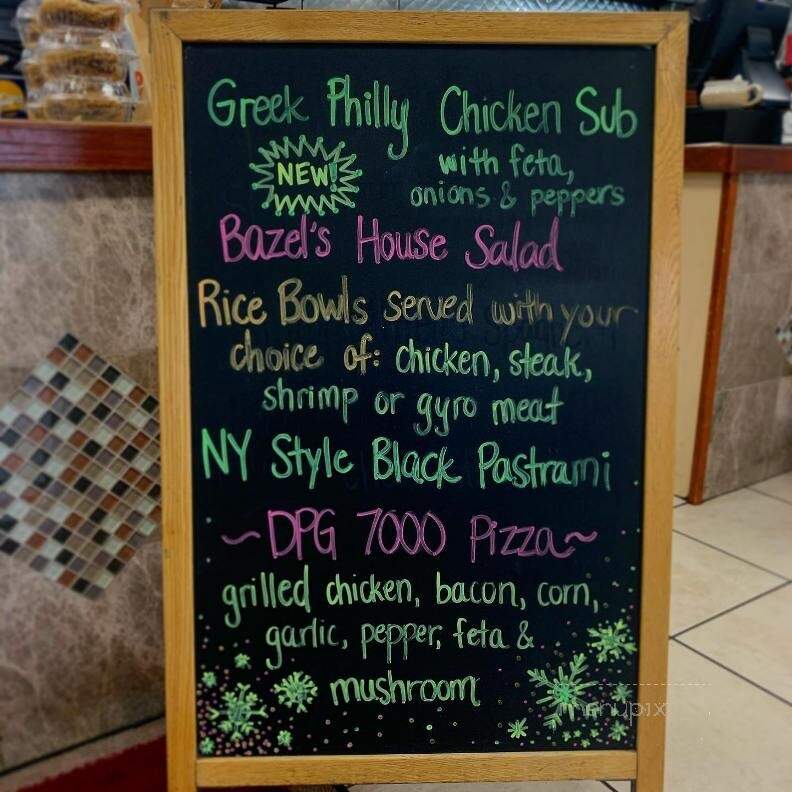 Greek Philly Chicken Sub
NEW! with feta,
onions & peppers
Bazel's House Salad
Rice Bowls served with your
choice of: chicken, steak,
shrimp or gyro meat
NY Style Black Pastrami
~DPG 7000 Pizza~
grilled chicken, bacon, corn,
garlic, pepper, feta &
mushroom